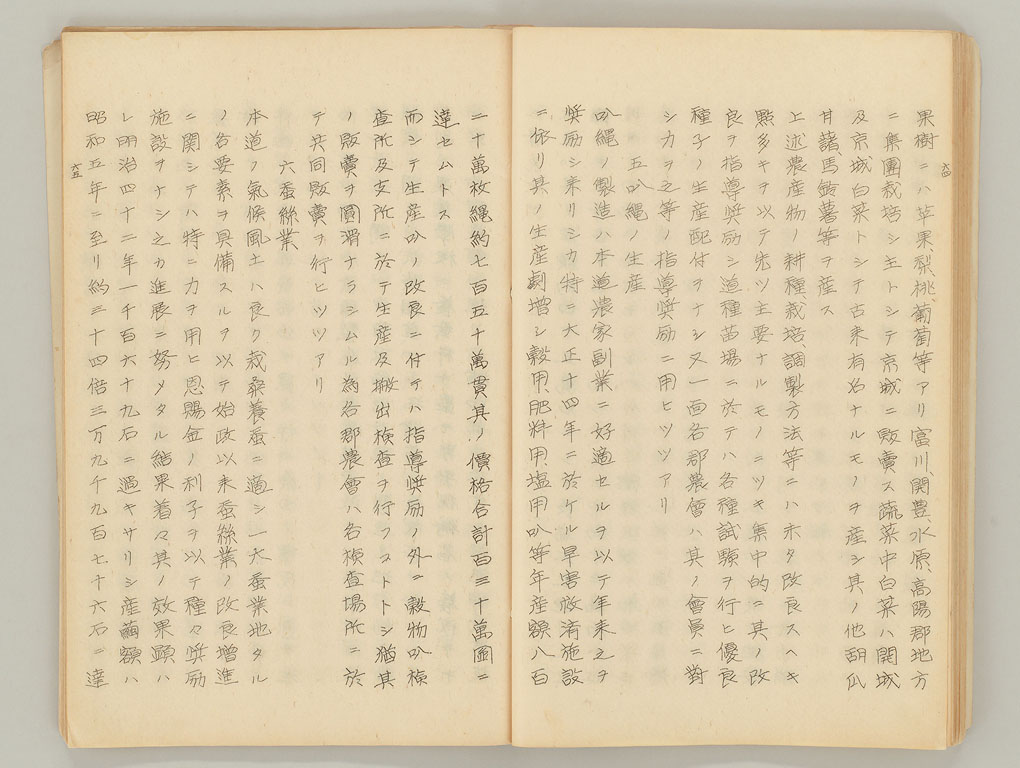 六四
果樹ニハ苹果、梨、桃、葡萄等アリ富川、開豊、水原、高陽郡地方
ニ集團栽培シ主トシテ京城ニ販賣ス蔬菜中白菜ハ開城
及京城白菜トシテ古来有名ナルモノヲ産シ其ノ他胡瓜
甘藷馬鈴薯等ヲ産ス
上述農産物ノ耕種、栽培、調製方法等ニハ未タ改良スヘキ
點多キヲ以テ先ツ主要ナルモノニツキ集中的ニ其ノ改
良ヲ指導奨励シ道種苗場ニ於テハ各種試験ヲ行ヒ優良
種子ノ生産配付ヲナシ又一面各郡農會ハ其ノ會員ニ對
シカヲ之等ノ指導奨励ニ用ヒツツアリ
五叺縄ノ生産
叺縄ノ製造ハ本道農家副業ニ好適セルヲ以テ年来之ヲ
奨励シ来リシカ特ニ大正十四年ニ於ケル旱害救済施設
ニ依リ其ノ生産劇増シ穀用、肥料用、塩用叺等年産額八百
二十萬枚縄約七百五十萬貫其ノ價格合計百三十萬圓ニ
達セムトス
而シテ生産叺ノ改良ニ付テハ指導奨励ノ外ニ穀物叺検
査所及支所ニ於テ生産及搬出検査ヲ行フコトトシ猶其
ノ販賣ヲ圓滑ナラシムル為各郡農會ハ各検査場所ニ於
テ共同販賣ヲ行ヒツツアリ
六蚕絲業
本道ノ氣候風土ハ良ク栽桑養蚕ニ適シ一大蚕業地タル
ノ各要素ヲ具備スルヲ以テ始政以来蚕絲業ノ改良増進
ニ関シテハ特ニ力ヲ用ヒ恩賜金ノ利子ヲ以テ種々奨励
施設ヲナシ之カ進展ニ努メタル結果着々其ノ效果顕ハ
レ明治四十二年一千百六十九石ニ過キサリシ産繭額ハ
昭和五年ニ至リ約三十四倍三万九千九百七十六石ニ達
六五